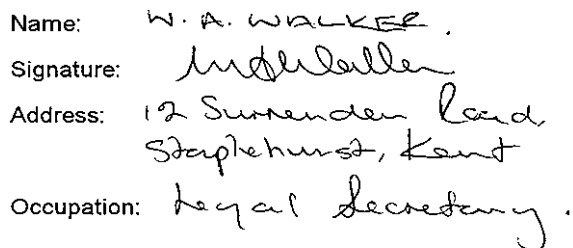 Name: W. A. WALKER.
Signature: WAWalker
Address: 12 Surrenden Road,
Staplehurst, Kent
Occupation: Legal Secretary.